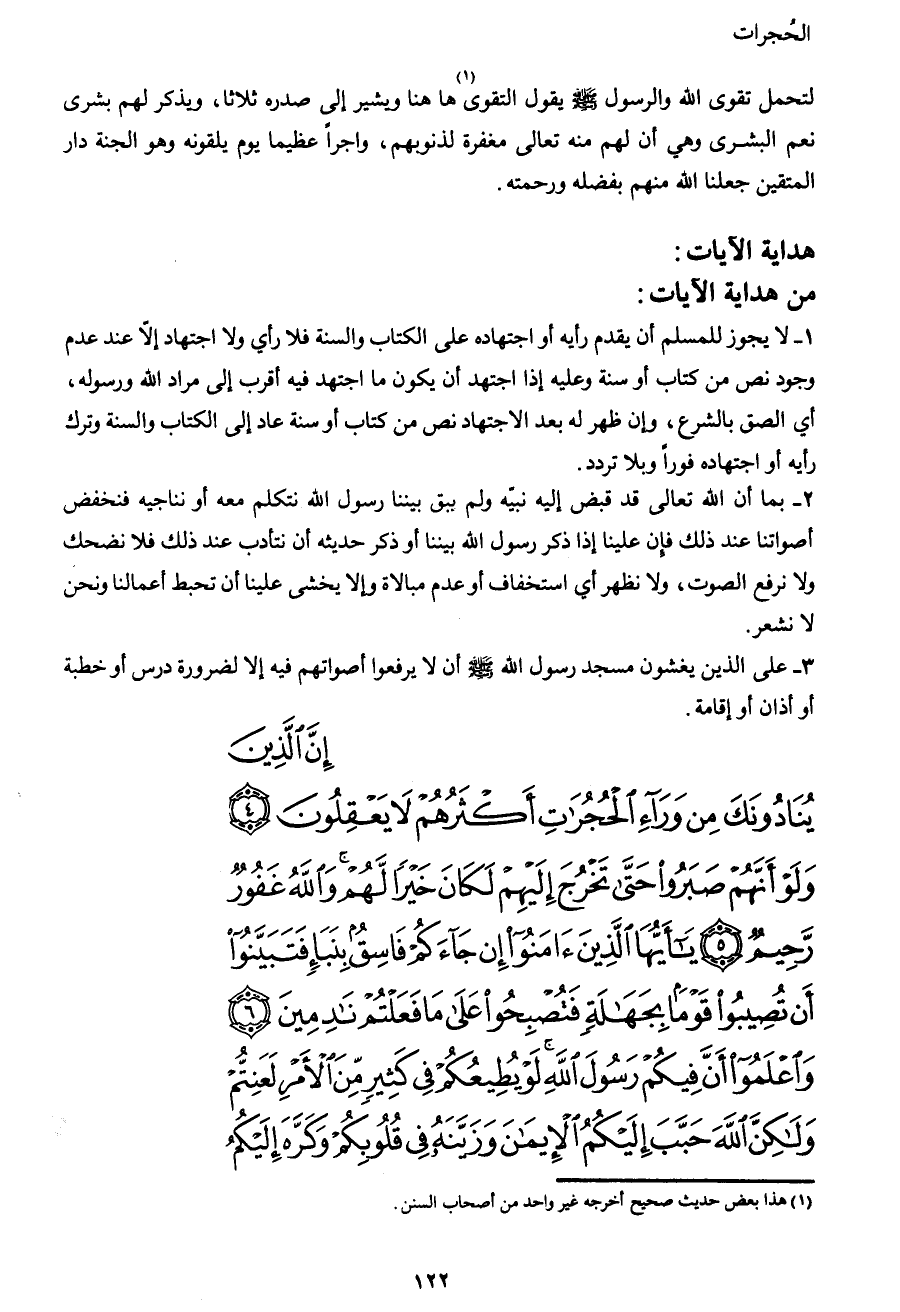 الحُجرات
لتحمل تقوى الله والرسول ﷺ يقول التقوى (١) ها هنا ويشير إلى صدره ثلاثا، ويذكر لهم بشرى
نعم البشرى وهي أن لهم منه تعالى مغفرة لذنوبهم، واجراً عظيما يوم يلقونه وهو الجنة دار
المتقين جعلنا الله منهم بفضله ورحمته.
هداية الآيات:
من هداية الآيات:
١ـ لا يجوز للمسلم أن يقدم رأيه أو اجتهاده على الكتاب والسنة فلا رأي ولا اجتهاد إلاّ عند عدم
وجود نص من كتاب أو سنة وعليه إذا اجتهد أن يكون ما اجتهد فيه أقرب إلى مراد الله ورسوله،
أي الصق بالشرع، وإن ظهر له بعد الاجتهاد نص من كتاب أو سنة عاد إلى الكتاب والسنة وترك
رأيه أو اجتهاده فوراً وبلا تردد.
٢ـ بما أن الله تعالى قد قبض إليه نبيّه ولم يبق بيننا رسول الله نتكلم معه أو نناجيه فنخفض
أصواتنا عند ذلك فإن علينا إذا ذكر رسول الله بيننا أو ذكر حديثه أن نتأدب عند ذلك فلا نضحك
ولا نرفع الصوت، ولا نظهر أي استخفاف أو عدم مبالاة وإلا يخشى علينا أن تحبط أعمالنا ونحن
لا نشعر.
٣ـ على الذين يغشون مسجد رسول الله ﷺ أن لا يرفعوا أصواتهم فيه إلا لضرورة درس أو خطبة
أو أذان أو إقامة.
إِنَّ ٱلَّذِينَ
يُنَادُونَكَ مِن وَرَآءِ ٱلْحُجُرَٰتِ أَكْثَرُهُمْ لَا يَعْقِلُونَ ٤
وَلَوْ أَنَّهُمْ صَبَرُوا۟ حَتَّىٰ تَخْرُجَ إِلَيْهِمْ لَكَانَ خَيْرًا لَّهُمْ ۚ وَٱللَّهُ غَفُورٌ
رَّحِيمٌ ٥ يَٰٓأَيُّهَا ٱلَّذِينَ ءَامَنُوٓا۟ إِن جَآءَكُمْ فَاسِقٌۢ بِنَبَإٍ فَتَبَيَّنُوٓا۟
أَن تُصِيبُوا۟ قَوْمًۢا بِجَهَٰلَةٍ فَتُصْبِحُوا۟ عَلَىٰ مَا فَعَلْتُمْ نَٰدِمِينَ ٦
وَٱعْلَمُوٓا۟ أَنَّ فِيكُمْ رَسُولَ ٱللَّهِ ۚ لَوْ يُطِيعُكُمْ فِى كَثِيرٍ مِّنَ ٱلْأَمْرِ لَعَنِتُّمْ
وَلَٰكِنَّ ٱللَّهَ حَبَّبَ إِلَيْكُمُ ٱلْإِيمَٰنَ وَزَيَّنَهُۥ فِى قُلُوبِكُمْ وَكَرَّهَ إِلَيْكُمُ
(١) هذا بعض حديث صحيح أخرجه غير واحد من أصحاب السنن.
١٢٢